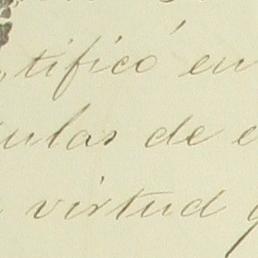 tificó en
ulas de e
virtud q